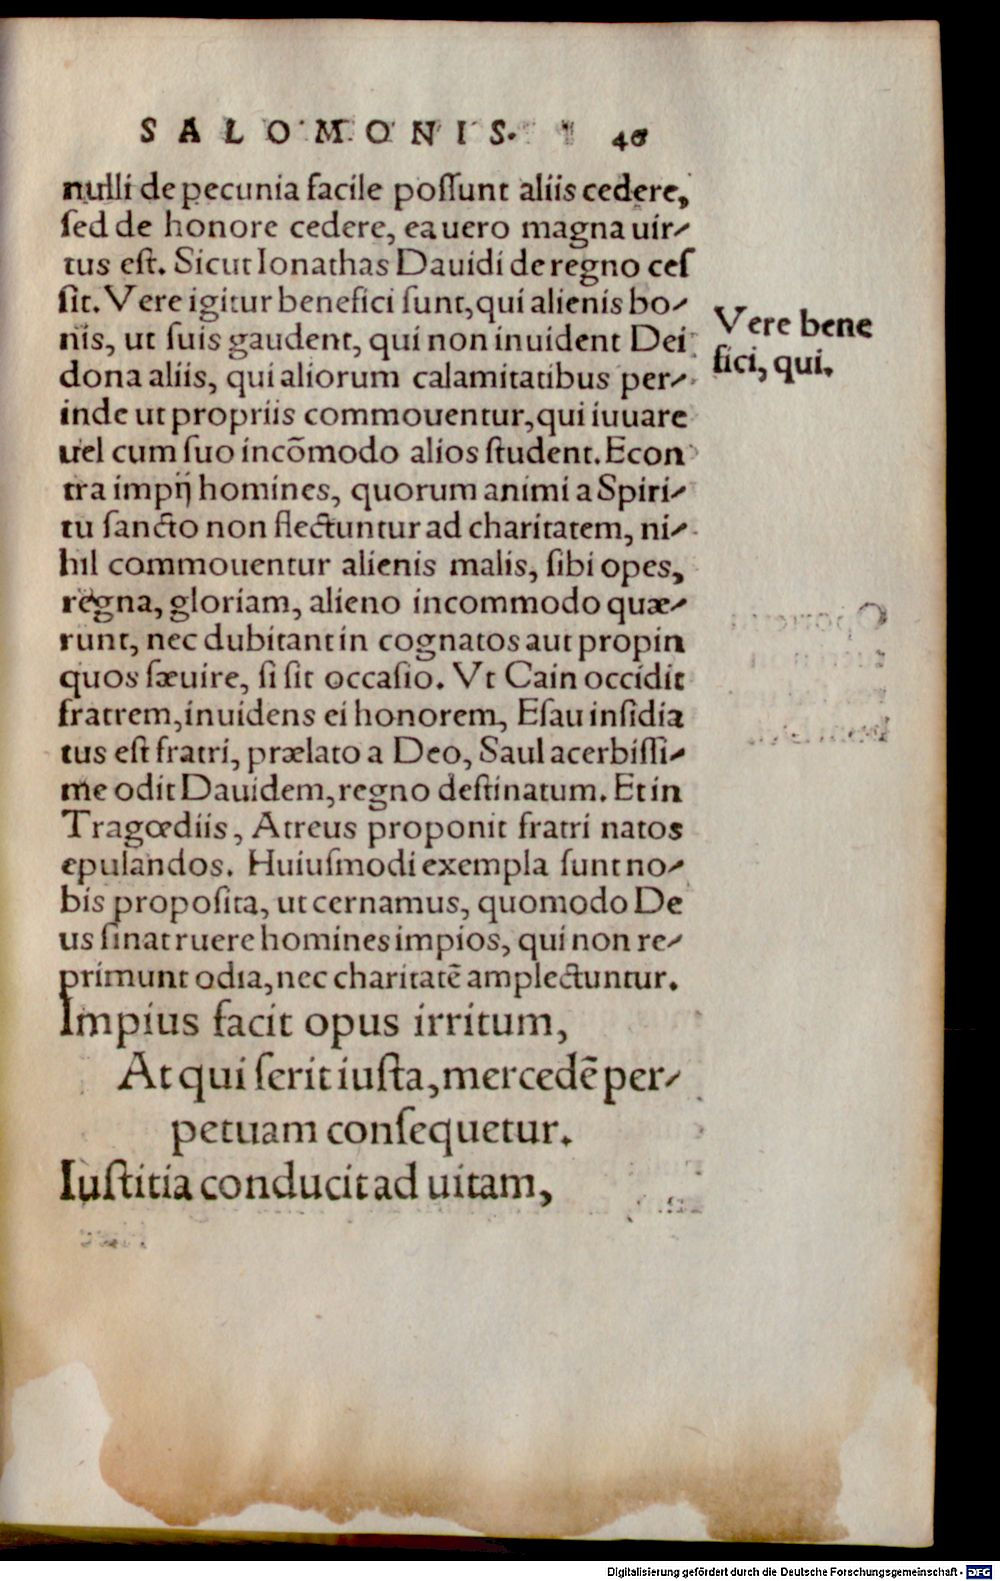 SALOMONIS. 46
nulli de pecunia facile poſſunt aliis cedere,
ſed de honore cedere, ea uero magna uir-
tus eſt. Sicut Ionathas Dauidi de regno ceſ
ſit. Vere igitur benefici ſunt, qui alienis bo-
nis, ut ſuis gaudent, qui non inuident Dei
dona aliis, qui aliorum calamitatibus per-
inde ut propriis commouentur, qui iuuare
uel cum ſuo incõmodo alios ſtudent. Econ
tra impij homines, quorum animi a Spiri-
tu ſancto non flectuntur ad charitatem, ni-
hil commouentur alienis malis, ſibi opes,
regna, gloriam, alieno incommodo quæ-
runt, nec dubitant in cognatos aut propin
quos ſæuire, ſi ſit occaſio. Vt Cain occidit
fratrem, inuidens ei honorem, Eſau inſidia
tus eſt fratri, prælato a Deo, Saul acerbiſſi-
me odit Dauidem, regno deſtinatum. Et in
Tragœdiis, Atreus proponit fratri natos
epulandos. Huiuſmodi exempla ſunt no-
bis propoſita, ut cernamus, quomodo De
us ſinat ruere homines impios, qui non re-
primunt odia, nec charitatẽ amplectuntur.
Impius facit opus irritum,
At qui ſerit iuſta, mercedẽ per-
petuam conſequetur.
Iuſtitia conducit ad uitam,
Vere bene
fici, qui.
Digitalisierung gefördert durch die Deutsche Forschungsgemeinschaft - DFG